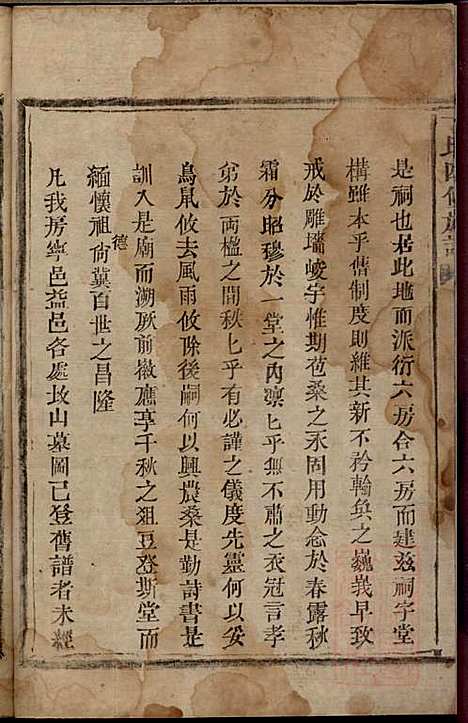 是祠也居此地而派衍六房合六房而建玆祠宇堂
構雖本乎舊制度則維其新不矜輪奐之巍峩早致
戒於雕墻峻宇惟期苞桑之永固用動念於春露秋
霜分昭穆於一堂之內凛匕乎無不肅之衣冠言孝
弟於兩楹之間秩匕乎有必謹之儀度先靈何以妥
鳥鼠攸去風雨攸除後嗣何以興農桑是勤詩書是
訓入是廟而溯厥前徽應享千秋之俎豆登斯堂而
緬懷祖德尙冀百世之昌隆
凡我房寧邑益邑各處坟山墓圖已登舊譜者未經
氏四修族譜